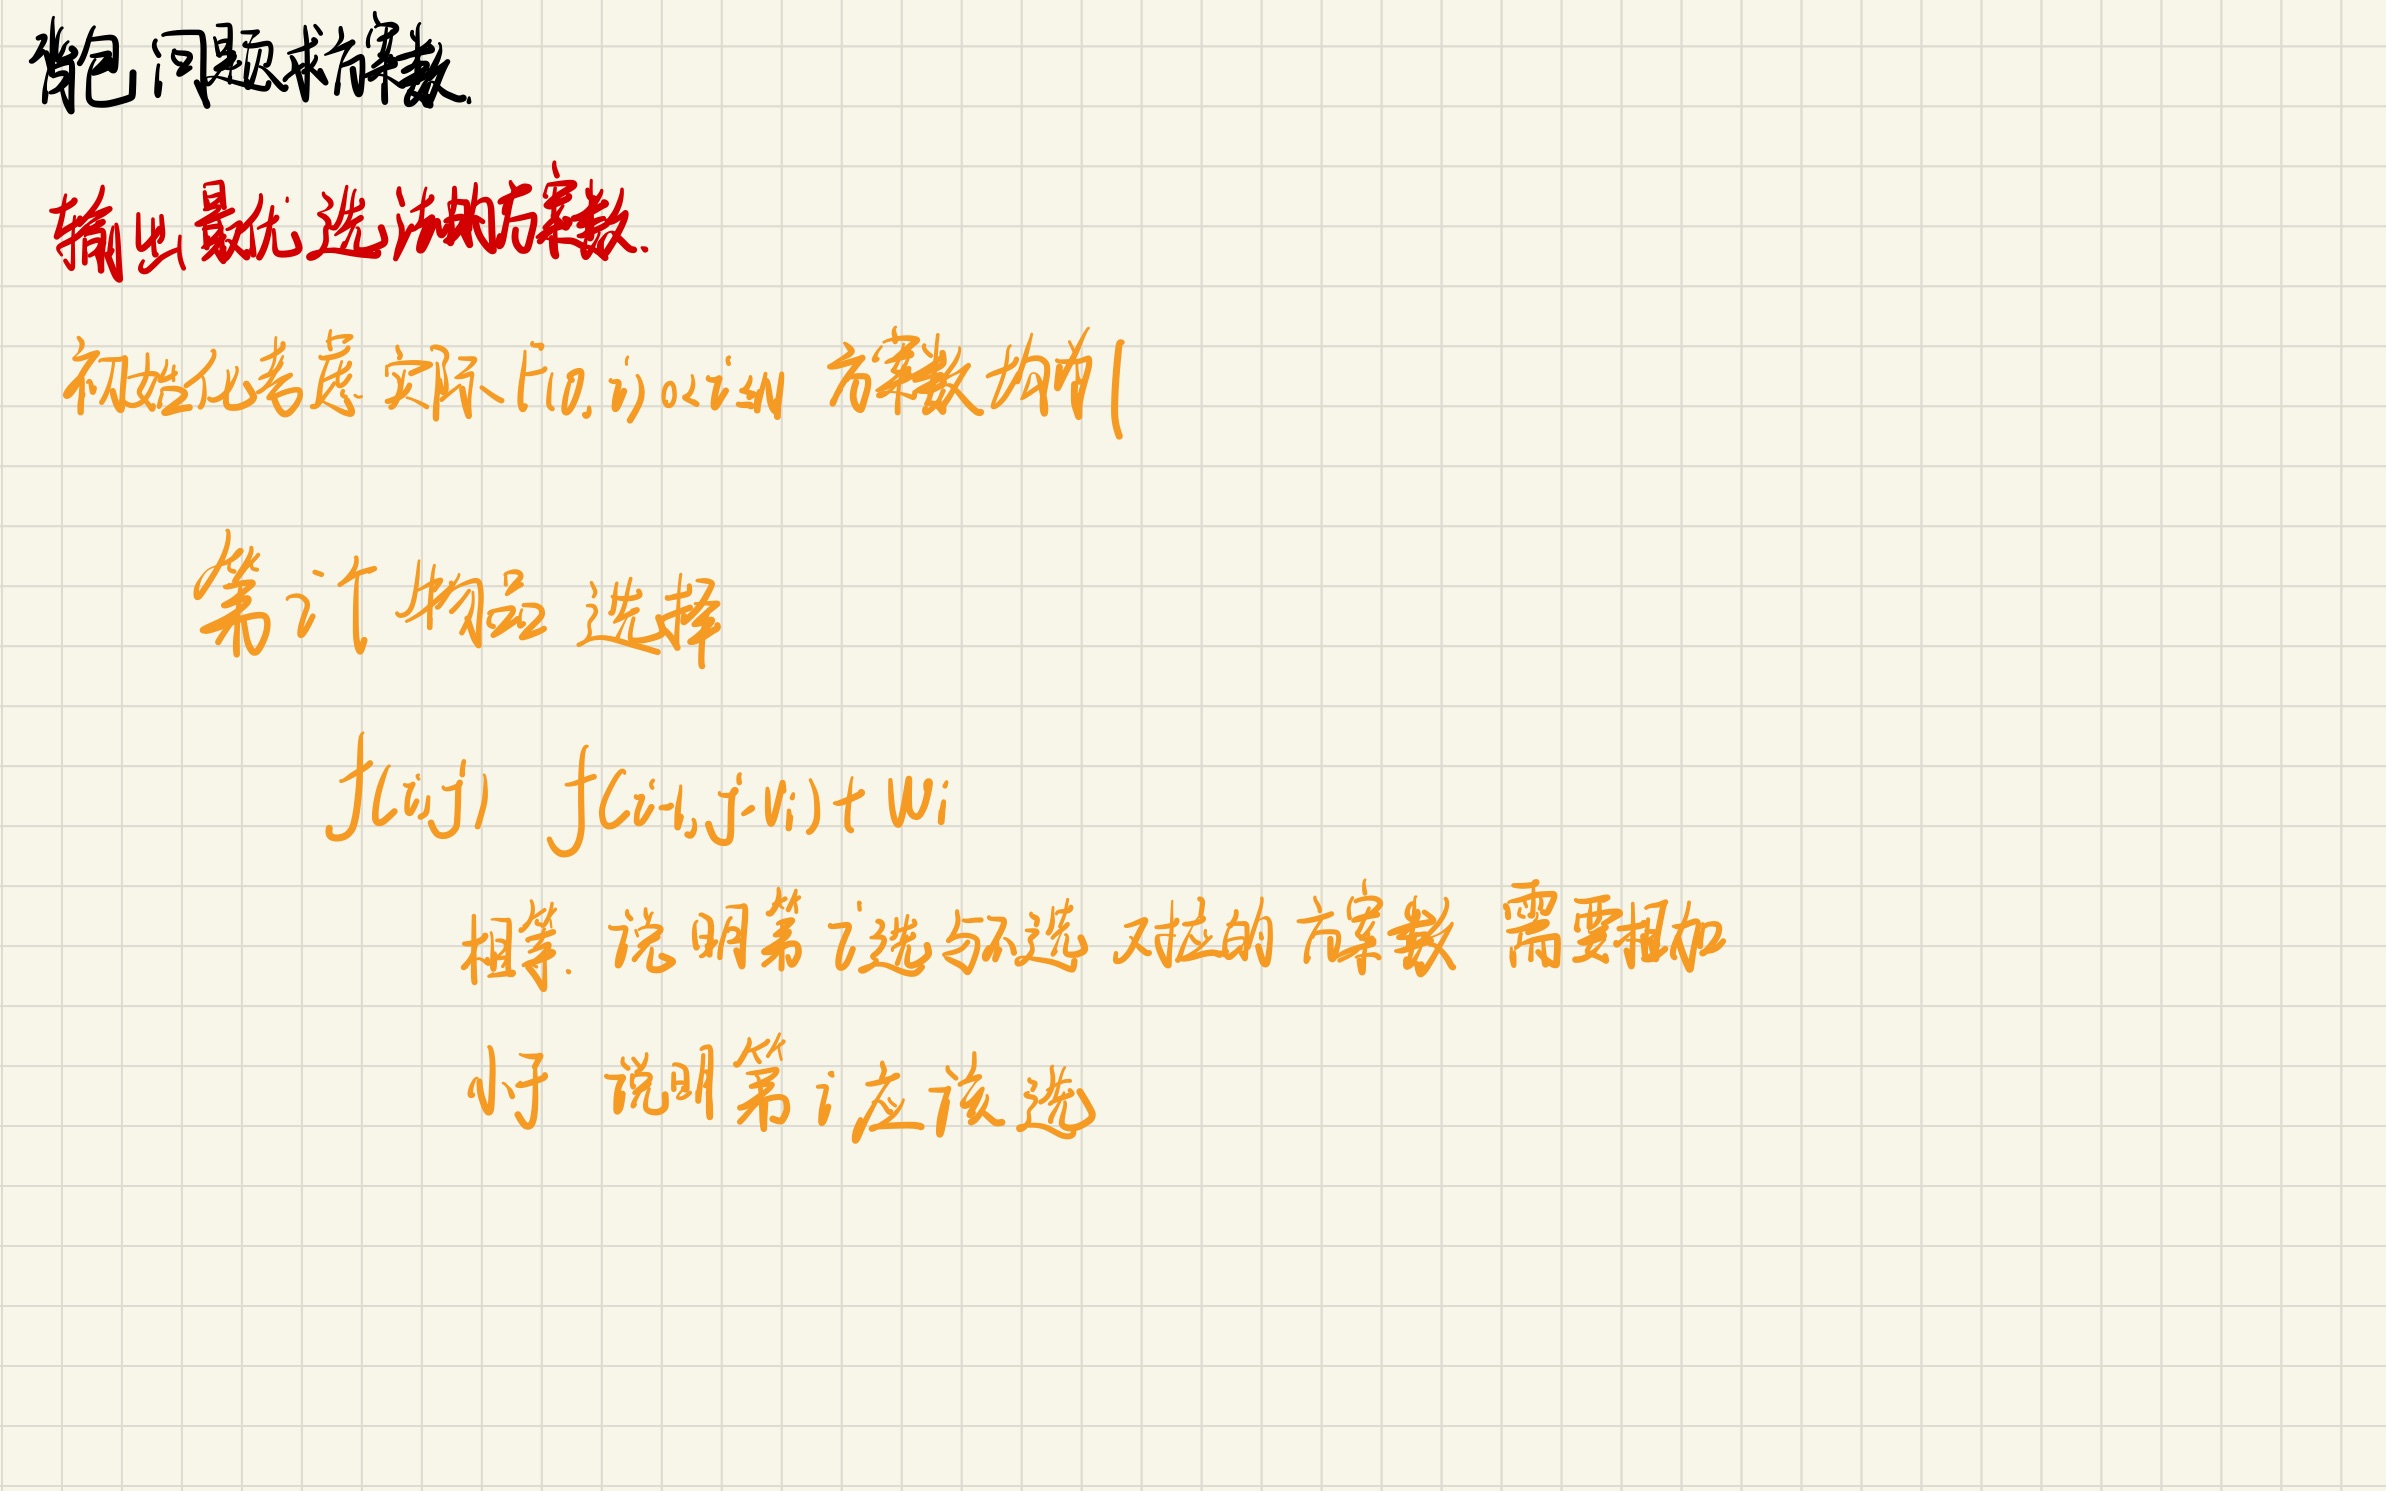 背包问题求方案数.
输出最优选法的方案数.
初始化考虑实际 F(0, i) 0≤i≤M 方案数均为1
第i个物品选择
f(i,j) f(i-1, j-Vi)+Wi
相等. 说明第i选与不选 对应的方案数 需要相加
小于 说明第i应该选